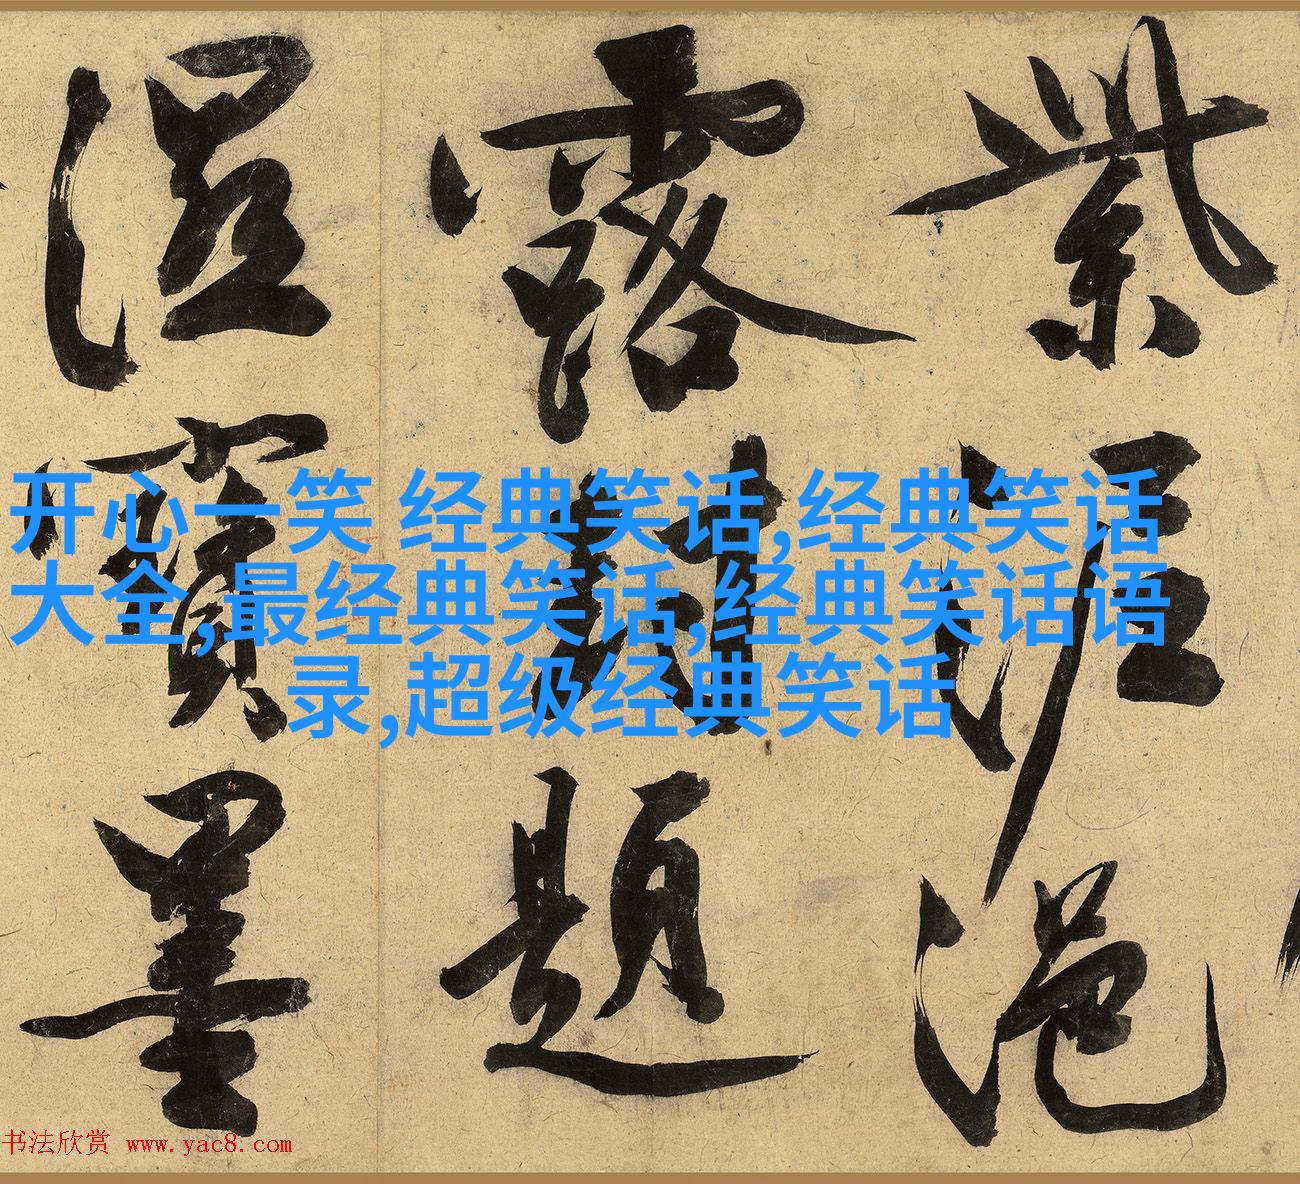 紫泥浥
露封題
濕寶墨
开心一笑 经典笑话,经典笑话
大全,最经典笑话,经典笑话语
录,超级经典笑话
书法欣赏 www.yac8.com